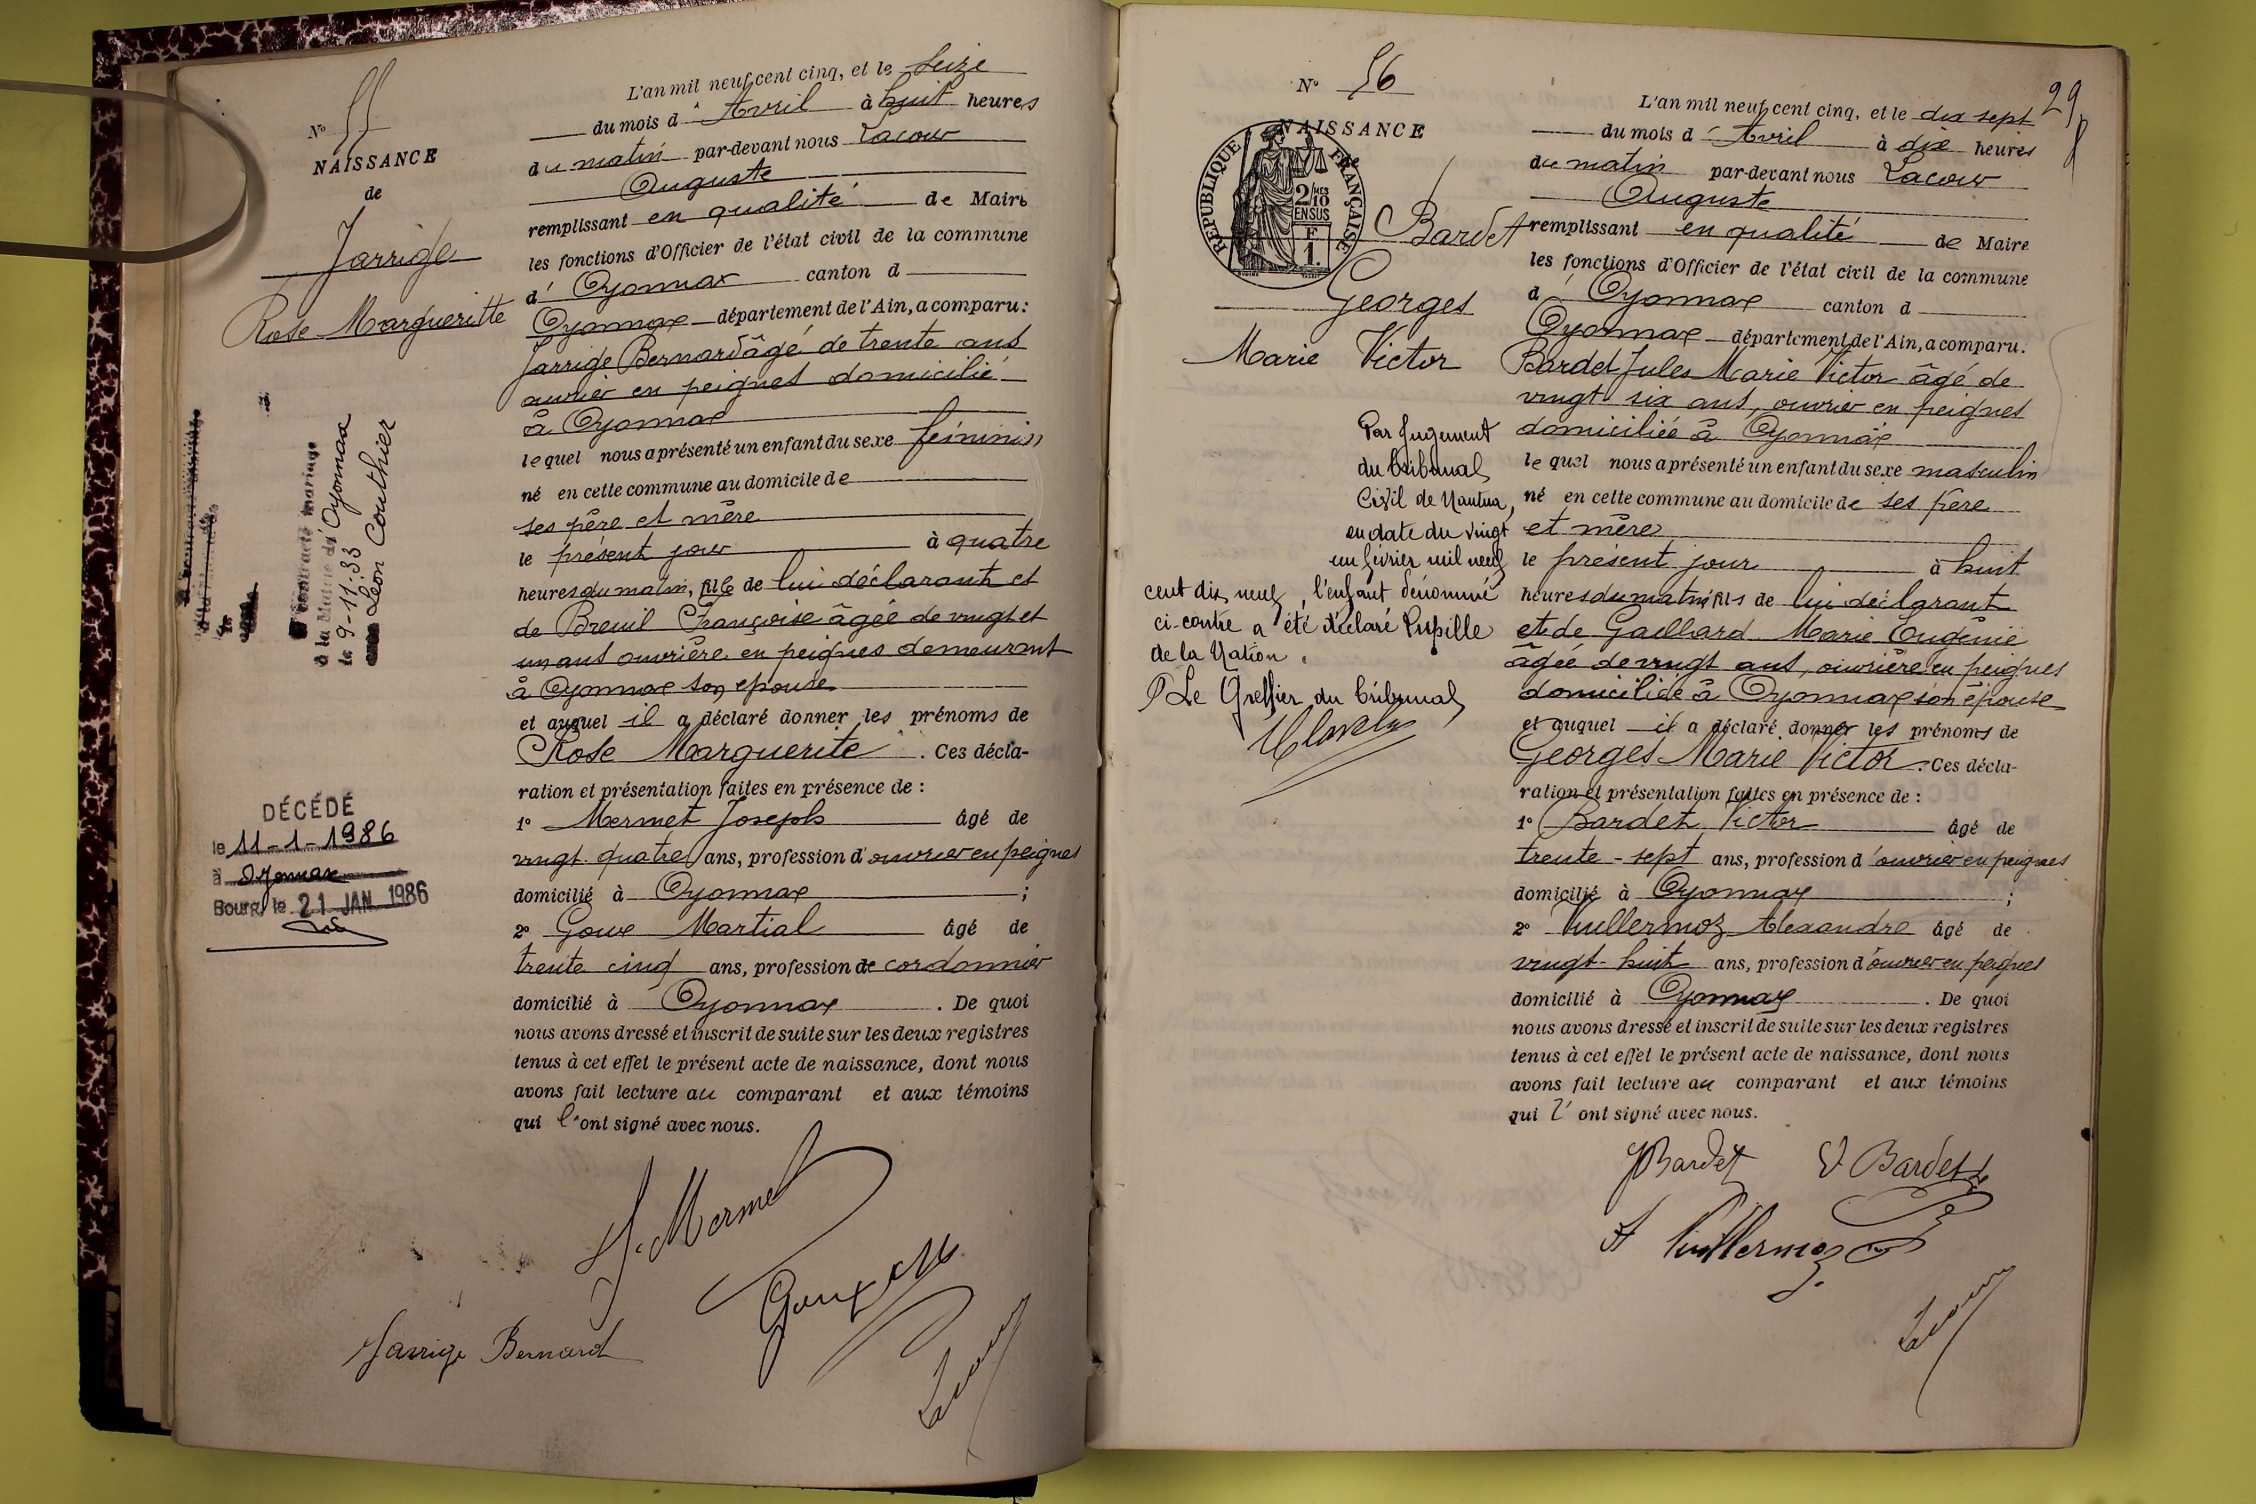 N° 55
NAISSANCE
de
Jarrige
Rose Margueritte
a contracté mariage
à la Mairie d'Oyonnax
le 9-11-33
avec Léon Couthier
DÉCÉDÉ
le 11-1-1986
à Oyonnax
Bourg, le 21 JAN 1986
L'an mil neuf cent cinq, et le seize
du mois d'Avril à huit heures
du matin par-devant nous Lacour
Auguste
remplissant en qualité de Maire
les fonctions d'Officier de l'état civil de la commune
d'Oyonnax canton d
Oyonnax département de l'Ain, a comparu:
Jarrige Bernard âgé de trente ans
ouvrier en peignes domicilié
à Oyonnax
lequel nous a présenté un enfant du sexe féminin
né en cette commune au domicile de
ses père et mère
le présent jour à quatre
heures du matin, fille de lui déclarant et
de Breuil Françoise âgée de vingt et
un ans ouvrière en peignes demeurant
à Oyonnax son épouse
et auquel il a déclaré donner les prénoms de
Rose Marguerite. Ces décla-
ration et présentation faites en présence de :
1° Mermet Joseph âgé de
vingt quatre ans, profession d'ouvrier en peignes
domicilié à Oyonnax ;
2° Goux Martial âgé de
trente cinq ans, profession de cordonnier
domicilié à Oyonnax. De quoi
nous avons dressé et inscrit de suite sur les deux registres
tenus à cet effet le présent acte de naissance, dont nous
avons fait lecture au comparant et aux témoins
qui l'ont signé avec nous.
J. Mermet
Goux
Jarrige Bernard
Lacour
29
N° 56
NAISSANCE
de
RÉPUBLIQUE FRANÇAISE
2/10 MES
EN SUS
F
1.
Bardet
Georges
Marie Victor
Par jugement
du tribunal
Civil de Nantua,
en date du vingt
un février mil neuf
cent dix neuf, l'enfant dénommé
ci-contre a été déclaré Pupille
de la Nation.
P Le Greffier du tribunal
L'an mil neuf cent cinq, et le dix sept
du mois d'Avril à dix heures
du matin par-devant nous Lacour
Auguste
remplissant en qualité de Maire
les fonctions d'Officier de l'état civil de la commune
d'Oyonnax canton d
Oyonnax département de l'Ain, a comparu.
Bardet Jules Marie Victor âgé de
vingt six ans, ouvrier en peignes
domiciliée à Oyonnax
lequel nous a présenté un enfant du sexe masculin
né en cette commune au domicile de ses père
et mère
le présent jour à huit
heures du matin, fils de lui déclarant
et de Gaillard Marie Eugénie
âgée de vingt ans, ouvrière en peignes
domiciliée à Oyonnax son épouse
et auquel il a déclaré donner les prénoms de
Georges Marie Victor. Ces décla-
ration et présentation faites en présence de :
1° Bardet Victor âgé de
trente-sept ans, profession d'ouvrier en peignes
domicilié à Oyonnax ;
2° Vuillermoz Alexandre âgé de
vingt-huit ans, profession d'ouvrier en peignes
domicilié à Oyonnax. De quoi
nous avons dressé et inscrit de suite sur les deux registres
tenus à cet effet le présent acte de naissance, dont nous
avons fait lecture au comparant et aux témoins
qui l'ont signé avec nous.
JBardet V Bardet
A Vuillermoz
Lacour